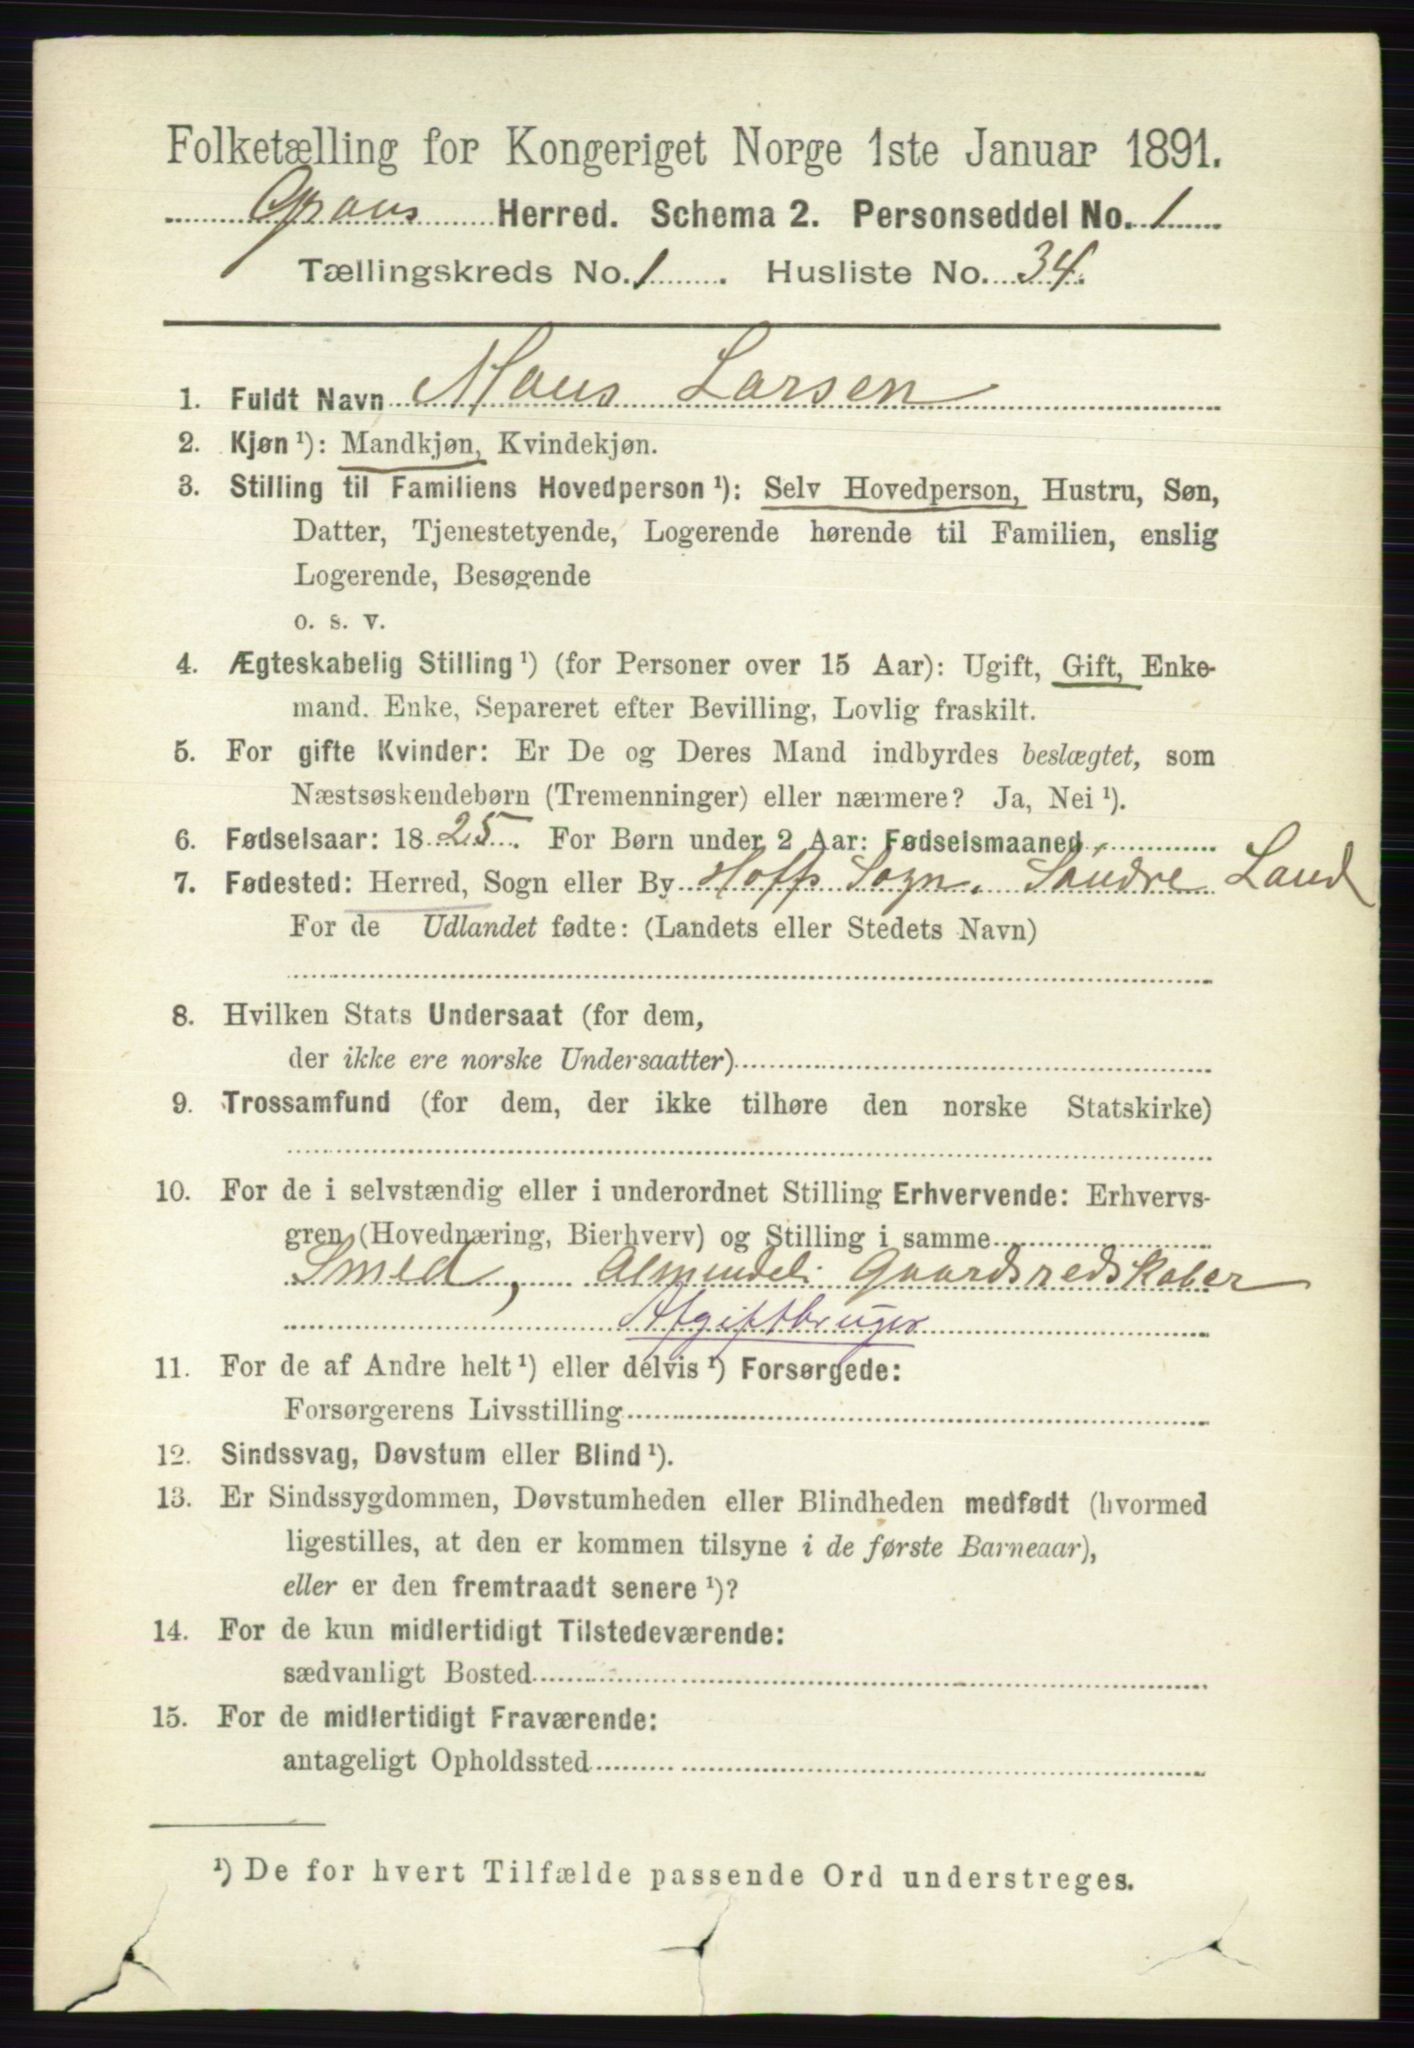 Folketælling for Kongeriget Norge 1ste Januar 1891.
Grans Herred. Schema 2. Personseddel No. 1
Tællingskreds No. 1. Husliste No. 34.
1. Fuldt Navn Maus Larsen
2. Kjøn ¹): Mandkjøn, Kvindekjøn.
3. Stilling til Familiens Hovedperson ¹): Selv Hovedperson, Hustru, Søn,
Datter, Tjenestetyende, Logerende hørende til Familien, enslig
Logerende, Besøgende
o. s. v.
4. Ægteskabelig Stilling ¹) (for Personer over 15 Aar): Ugift, Gift, Enke-
mand. Enke, Separeret efter Bevilling, Lovlig fraskilt.
5. For gifte Kvinder: Er De og Deres Mand indbyrdes beslægtet, som
Næstsøskendebørn (Tremenninger) eller nærmere? Ja, Nei ¹).
6. Fødselsaar: 1825. For Børn under 2 Aar: Fødselsmaaned
7. Fødested: Herred, Sogn eller By Hoffs Sogn. Søndre Land
For de Udlandet fødte: (Landets eller Stedets Navn)
8. Hvilken Stats Undersaat (for dem,
der ikke ere norske Undersaatter)
9. Trossamfund (for dem, der ikke tilhøre den norske Statskirke)
10. For de i selvstændig eller i underordnet Stilling Erhvervende: Erhvervs-
gren (Hovednæring, Bierhverv) og Stilling i samme
Smed, Almindeli Gaardsredskaber
Afgiftbruger
11. For de af Andre helt ¹) eller delvis ¹) Forsørgede:
Forsørgerens Livsstilling
12. Sindssvag, Døvstum eller Blind ¹).
13. Er Sindssygdommen, Døvstumheden eller Blindheden medfødt (hvormed
ligestilles, at den er kommen tilsyne i de første Barneaar),
eller er den fremtraadt senere ¹)?
14. For de kun midlertidigt Tilstedeværende:
sædvanligt Bosted
15. For de midlertidigt Fraværende:
antageligt Opholdssted
¹) De for hvert Tilfælde passende Ord understreges.